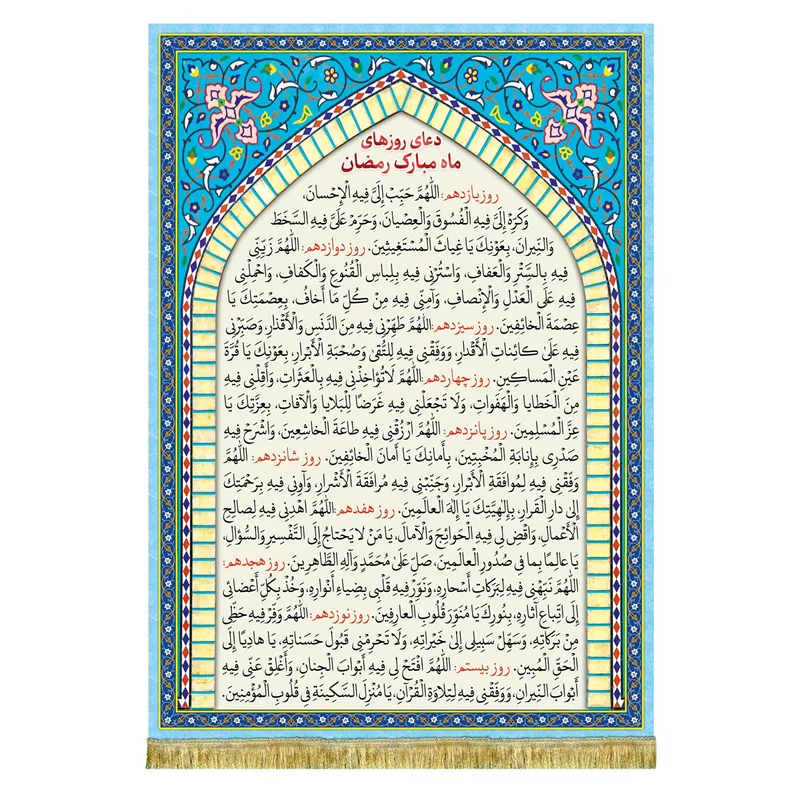 دعای روزهای
ماه مبارک رمضان
روز یازدهم: اللّٰهُمَّ حَبِّبْ إِلَيَّ فِيهِ الْإِحْسانَ،
وَكَرِّهْ إِلَيَّ فِيهِ الْفُسُوقَ وَالْعِصْيانَ، وَحَرِّمْ عَلَيَّ فِيهِ السَّخَطَ
وَالنِّيرانَ، بِعَوْنِكَ يَا غِياثَ الْمُسْتَغِيثِينَ. روز دوازدهم: اللّٰهُمَّ زَيِّنِّي
فِيهِ بِالسَّتْرِ وَالْعَفافِ، وَاسْتُرْنِي فِيهِ بِلِباسِ الْقُنُوعِ وَالْكَفافِ، وَاحْمِلْنِي
فِيهِ عَلَى الْعَدْلِ وَالْإِنْصافِ، وَآمِنِّي فِيهِ مِنْ كُلِّ مَا أَخافُ، بِعِصْمَتِكَ يَا
عِصْمَةَ الْخائِفِينَ. روز سیزدهم: اللّٰهُمَّ طَهِّرْنِي فِيهِ مِنَ الدَّنَسِ وَالْأَقْذارِ، وَصَبِّرْنِي
فِيهِ عَلَىٰ كائِناتِ الْأَقْدارِ، وَوَفِّقْنِي فِيهِ لِلتُّقىٰ وَصُحْبَةِ الْأَبْرارِ، بِعَوْنِكَ يَا قُرَّةَ
عَيْنِ الْمَساكِينِ. روز چهاردهم: اللّٰهُمَّ لَا تُؤاخِذْنِي فِيهِ بِالْعَثَراتِ، وَأَقِلْنِي فِيهِ
مِنَ الْخَطايا وَالْهَفَواتِ، وَلَا تَجْعَلْنِي فِيهِ غَرَضًا لِلْبَلايا وَالْآفاتِ، بِعِزَّتِكَ يَا
عِزَّ الْمُسْلِمِينَ. روز پانزدهم: اللّٰهُمَّ ارْزُقْنِي فِيهِ طاعَةَ الْخاشِعِينَ، وَاشْرَحْ فِيهِ
صَدْرِي بِإِنابَةِ الْمُخْبِتِينَ، بِأَمانِكَ يَا أَمانَ الْخائِفِينَ. روز شانزدهم: اللّٰهُمَّ
وَفِّقْنِي فِيهِ لِمُوافَقَةِ الْأَبْرارِ، وَجَنِّبْنِي فِيهِ مُرافَقَةَ الْأَشْرارِ، وَآوِنِي فِيهِ بِرَحْمَتِكَ
إِلىٰ دارِ الْقَرارِ، بِإِلٰهِيَّتِكَ يَا إِلٰهَ الْعالَمِينَ. روز هفدهم: اللّٰهُمَّ اهْدِنِي فِيهِ لِصالِحِ
الْأَعْمالِ، وَاقْضِ لِي فِيهِ الْحَوائِجَ وَالْآمالَ، يَا مَنْ لَا يَحْتاجُ إِلَى التَّفْسِيرِ وَالسُّؤالِ،
يَا عالِمًا بِما فِي صُدُورِ الْعالَمِينَ، صَلِّ عَلىٰ مُحَمَّدٍ وَآلِهِ الطَّاهِرِينَ. روز هجدهم:
اللّٰهُمَّ نَبِّهْنِي فِيهِ لِبَرَكاتِ أَسْحارِهِ، وَنَوِّرْ فِيهِ قَلْبِي بِضِياءِ أَنْوارِهِ، وَخُذْ بِكُلِّ أَعْضائِي
إِلَى اتِّباعِ آثارِهِ، بِنُورِكَ يَا مُنَوِّرَ قُلُوبِ الْعارِفِينَ. روز نوزدهم: اللّٰهُمَّ وَفِّرْ فِيهِ حَظِّي
مِنْ بَرَكاتِهِ، وَسَهِّلْ سَبِيلِي إِلىٰ خَيْراتِهِ، وَلَا تَحْرِمْنِي قَبُولَ حَسَناتِهِ، يَا هادِيًا إِلَى
الْحَقِّ الْمُبِينِ. روز بیستم: اللّٰهُمَّ افْتَحْ لِي فِيهِ أَبْوابَ الْجِنانِ، وَأَغْلِقْ عَنِّي فِيهِ
أَبْوابَ النِّيرانِ، وَوَفِّقْنِي فِيهِ لِتِلاوَةِ الْقُرْآنِ، يَا مُنْزِلَ السَّكِينَةِ فِي قُلُوبِ الْمُؤْمِنِينَ.